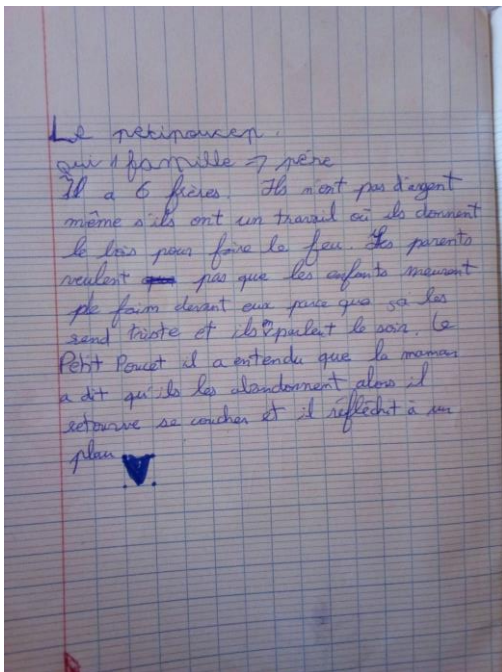 Le petipoucep.
qui 1 famille => père
Il a 6 frères. Ils n'ont pas d'argent
même s'ils ont un travail où ils donnent
le bois pour faire le feu. Les parents
veulent pas que les enfants meurent
de faim devant eux parce que ça les
rend triste et ils parlent le soir. Le
Petit Poucet il a entendu que la maman
a dit qu'ils les abandonnent alors il
retourne se coucher et il réfléchit à un
plan